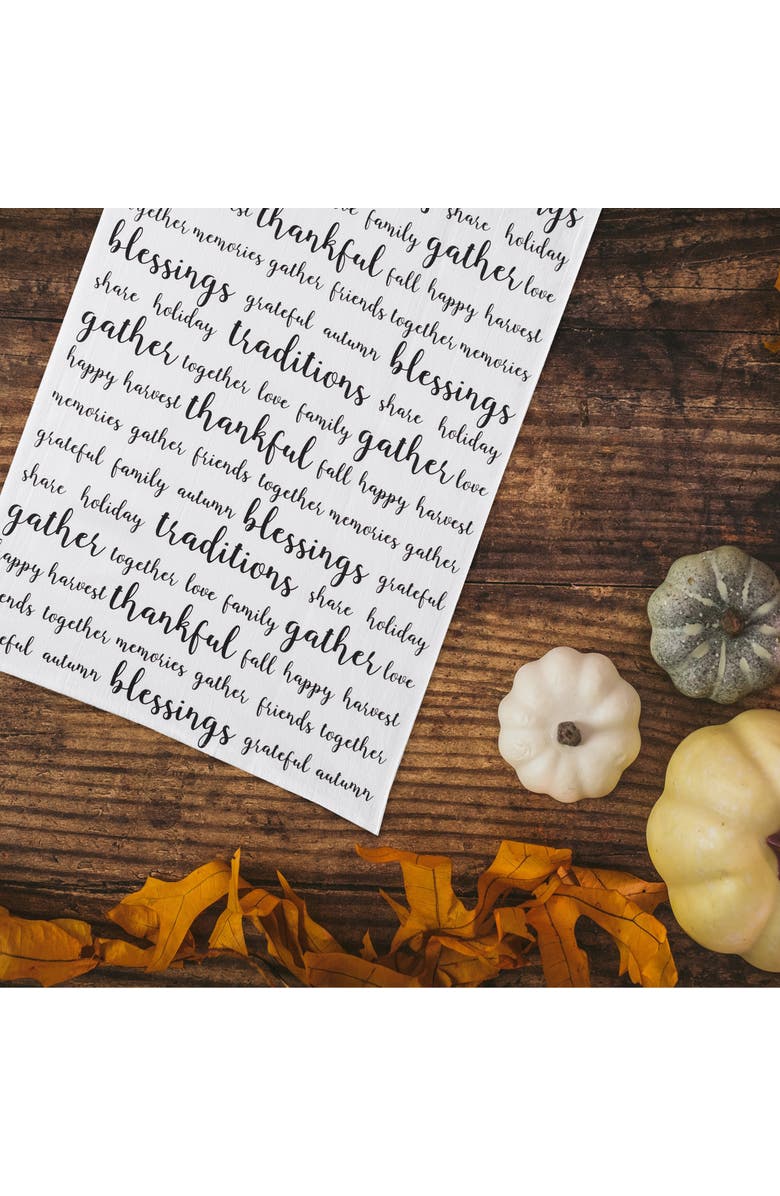 thankful family share
together memories gather friends together memories
blessings grateful autumn blessings
fall happy harvest
gather love holiday
share holiday traditions share holiday
gather together love family gather love
happy harvest thankful fall happy harvest
memories gather friends together memories gather
grateful family autumn blessings grateful
share holiday traditions share holiday
gather together love family gather love
happy harvest thankful fall happy harvest
together memories gather friends together
autumn blessings grateful autumn